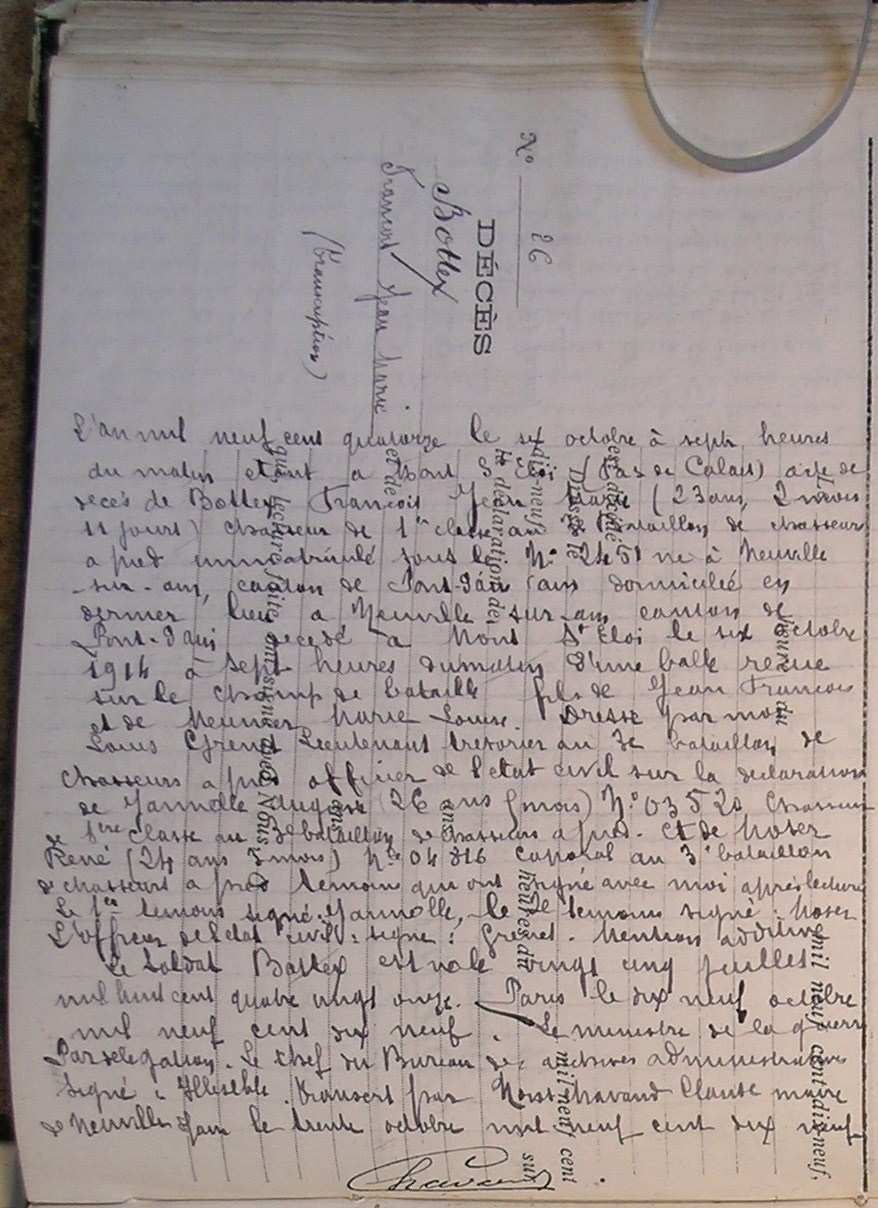 N° 26
DÉCÈS
Bottex
François Jean Marie
(transcription)
L'an mil neuf cent quatorze le six octobre à sept heures
du matin étant a Mont St Eloi (Pas de Calais) acte de
décès de Bottex François Jean Marie (23 ans, 2 mois
11 jours) chasseur de 1re classe au Bataillon de chasseurs
a pied immatriculé sous le N° 2451 né à Neuville
-sur-ain, canton de Pont-d'ain (ain) domicilié en
dernier lieu a Neuville-sur-ain canton de
Pont-d'ain décédé a Mont St Eloi le six octobre
1914 à sept heures du matin d'une balle recue
sur le champ de bataille fils de Jean François
et de Meunier Marie Louise. Dressé par moi
Louis Grenet Lieutenant trésorier au 3e bataillon de
chasseurs a pied officier de l'état civil sur la declaration
de Jannolle (26 ans mois) N° 03520 Chasseur
de 1ère classe au 3e bataillon de chasseurs a pied. Et de Noser
René (24 ans mois) N° 04816 caporal au 3e bataillon
de chasseurs a pied temoins qui ont signé avec moi après lecture
Le 1er temoin signé: Jannolle, le 2e temoin signé: Noser
L'officier de l'état civil: signé: Grenet. Mention additive
Le Soldat Bottex est né le vingt cinq juillet
mil huit cent quatre vingt onze. Paris le dix neuf octobre
mil neuf cent dix neuf. Le ministre de la guerre
Par délégation. Le Chef du Bureau des archives administratives
Signé: Illisible. Transcrit par Nous Chavand Claude maire
de Neuville s/ain le trente octobre mil neuf cent dix neuf
Chavand
et de
que, lecture faite, ont signé avec Nous
ans
dix-neuf
la déclaration de
an
heures du
mil neuf cent
sur
Dressé le
jour du
mil neuf cent dix-neuf,